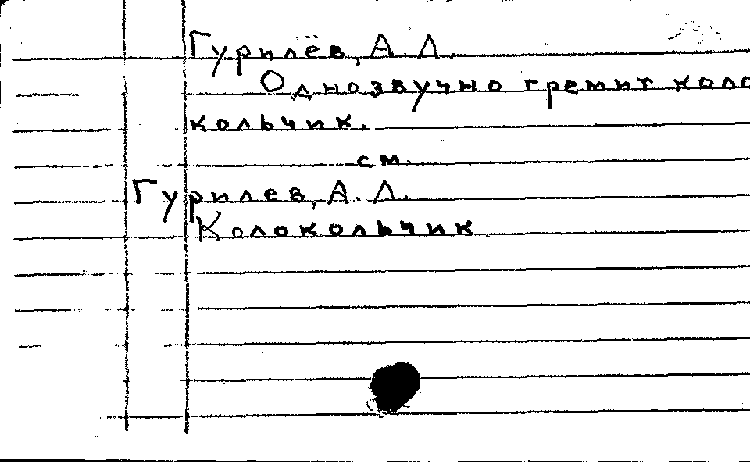 Гурилёв, А. Л.
Однозвучно гремит коло
кольчик.
см.
Гурилев, А. Л.
Колокольчик